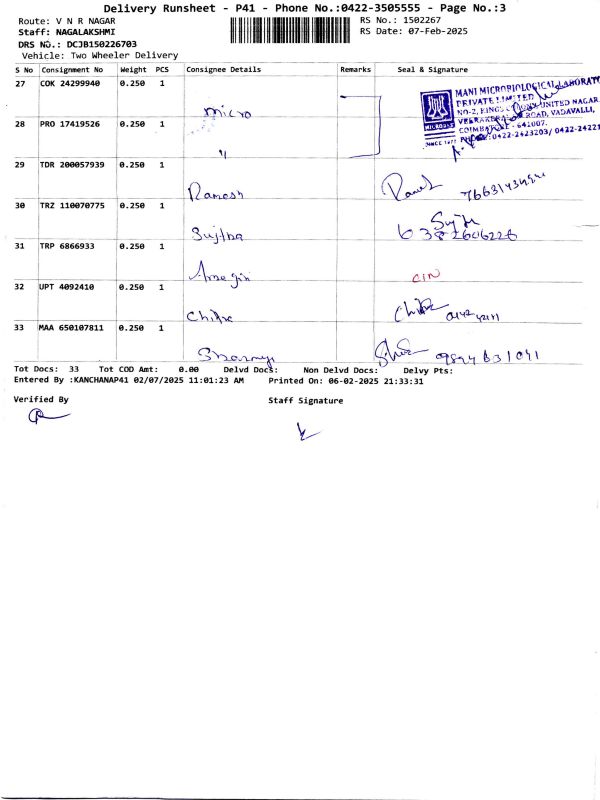 Delivery Runsheet - P41 - Phone No.:0422-3505555 - Page No.:3
Route: V N R NAGAR
RS No.: 1502267
Staff: NAGALAKSHMI
RS Date: 07-Feb-2025
DRS No.: DCJB150226703
Vehicle: Two Wheeler Delivery
S No Consignment No Weight PCS Consignee Details Remarks Seal & Signature
27 COK 24299940 0.250 1 micro
MANI MICROBIOLOGICAL LABORATO
PRIVATE LIMITED
NO-2, KINGS UNITED NAGAR
ROAD, VADAVALLI,
COIMBATORE - 641007.
0422-2423203/ 0422-24221
MICRO
SINCE 1977
28 PRO 17419526 0.250 1 "
29 TDR 200057939 0.250 1 Ramesh
30 TRZ 110070775 0.250 1 Sujitha
6382606226
31 TRP 6866933 0.250 1 CIN
32 UPT 4092410 0.250 1 Chitra
33 MAA 650107811 0.250 1
Tot Docs: 33 Tot COD Amt: 0.00 Delvd Docs: Non Delvd Docs: Delvy Pts:
Entered By :KANCHANAP41 02/07/2025 11:01:23 AM Printed On: 06-02-2025 21:33:31
Verified By Staff Signature